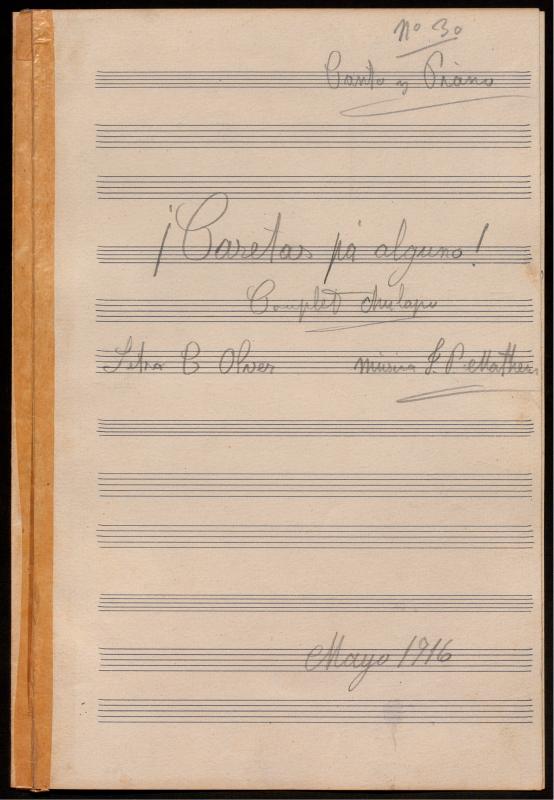 Nº 30
Canto y Piano
¡Caretas pá alguno!
Couplet chulapo
Letra C Oliver
Música F. P.
Mayo 1916